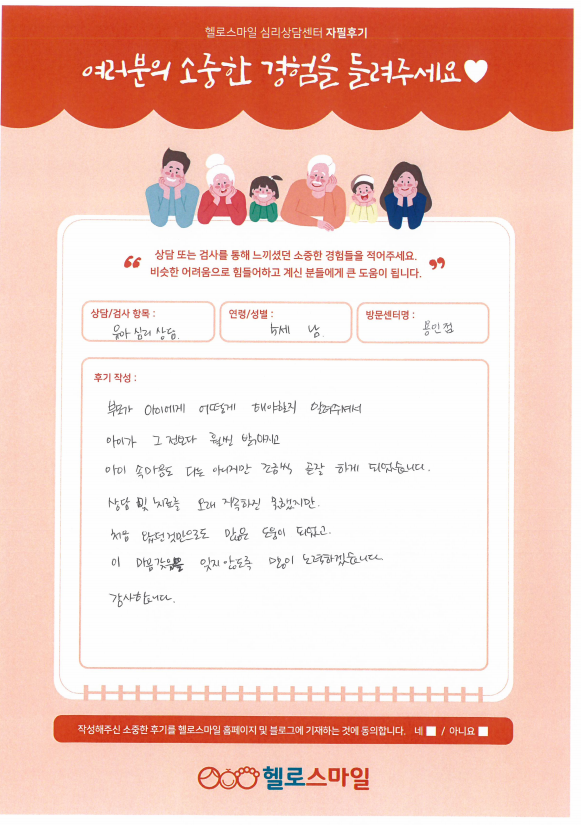 헬로스마일 심리상담센터 자필후기
여러분의 소중한 경험을 들려주세요
상담 또는 검사를 통해 느끼셨던 소중한 경험들을 적어주세요.
비슷한 어려움으로 힘들어하고 계신 분들에게 큰 도움이 됩니다.
상담/검사 항목 : 유아 심리 상담.
연령/성별 : 5세 남.
방문센터명 : 용인점
후기 작성 :
부모가 아이에게 어떻게 해야할지 알려주셔서
아이가 그 전보다 훨씬 밝아지고
아이 속마음도 다는 아니지만 조금씩 곧잘 하게 되었습니다.
상담 및 치료를 오래 지속하진 못했지만.
처음 왔던것만으로도 많은 도움이 되었고.
이 마음 잊지 않도록 많이 노력하겠습니다.
감사합니다.
작성해주신 소중한 후기를 헬로스마일 홈페이지 및 블로그에 기재하는 것에 동의합니다. 네 / 아니요
헬로스마일